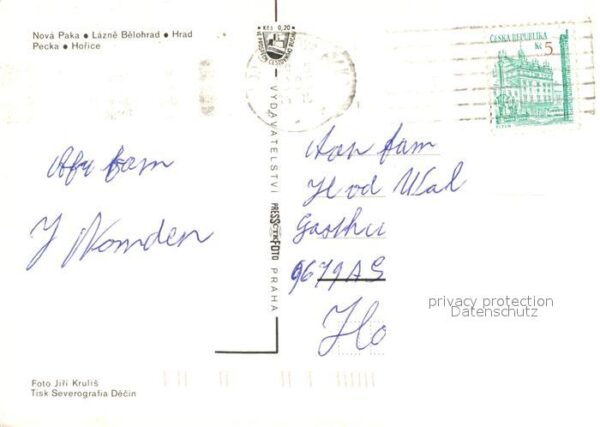 Nová Paka • Lázně Bělohrad • Hrad
Pecka • Hořice
Kčs 0,20
ČESKÁ REPUBLIKA
Kč 5
PLZEŇ
VYDAVATELSTVÍ PRESSFOTO PRAHA
Afz fam
J Nomden
Aan fam
H vd Wal
Gasthu
9679AG
Ho
privacy protection
Datenschutz
Foto Jiří Kruliš
Tisk Severografia Děčín